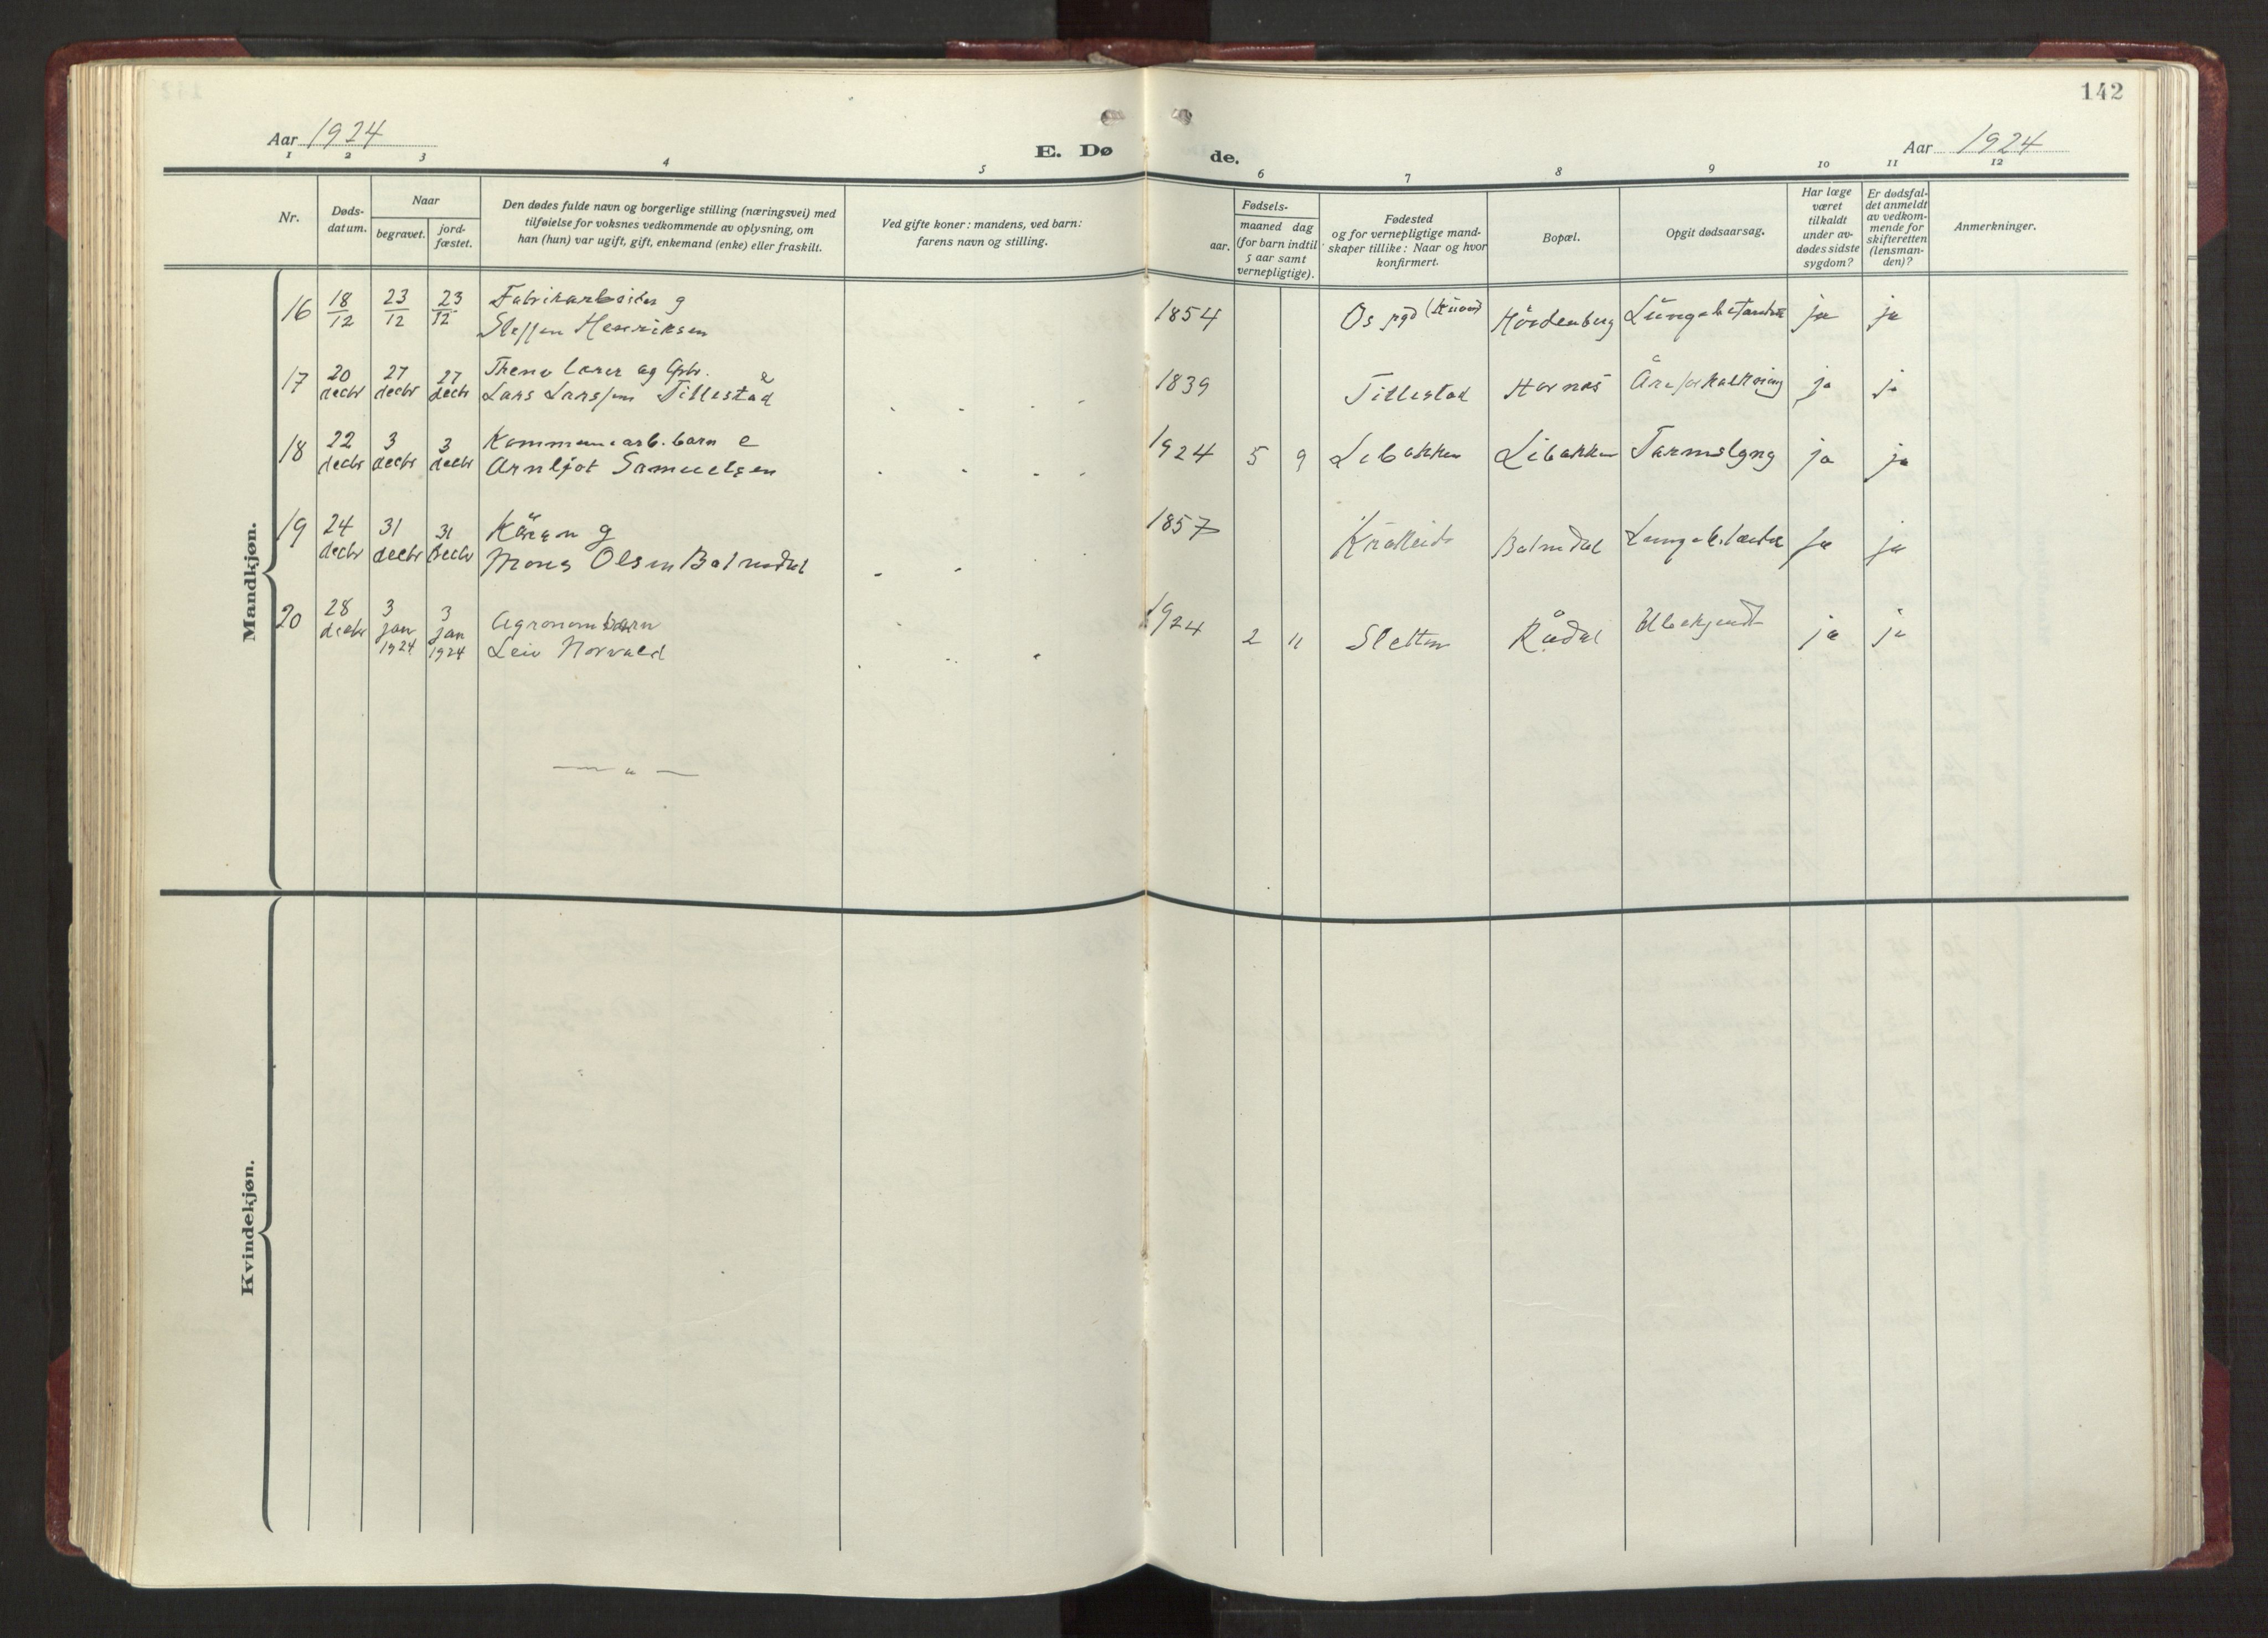 142
Aar 1924
E. Dø
de.
Aar 1924
1 2 3 4 5 6 7 8 9 10 11 12
Nr.
Døds-
datum.
Naar
begravet.
jord-
fæstet.
Den dødes fulde navn og borgerlige stilling (næringsvei) med
tilføielse for voksnes vedkommende av oplysning, om
han (hun) var ugift, gift, enkemand (enke) eller fraskilt.
Ved gifte koner: mandens, ved barn:
farens navn og stilling.
Fødsels-
aar.
maaned dag
(for barn indtil
5 aar samt
vernepligtige).
Fødested
og for vernepligtige mand-
skaper tillike: Naar og hvor
konfirmert.
Bopæl.
Opgit dødsaarsag.
Har læge
været
tilkaldt
under av-
dødes sidste
sygdom?
Er dødsfal-
det anmeldt
av vedkom-
mende for
skifteretten
(lensman-
den)?
Anmerkninger.
Mandkjøn.
16 18/12 23/12 23/12 Fabrikarbeider g
Steffen Henriksen
1854 Os pgd ja ja
17 20 decbr 27 decbr 27 decbr
Lars Larssen Tillestad e
1839 Tillestad Hornes Åreforkalkning ja ja
18 22 decbr 3 decbr 3 decbr Kommunearb. barn e
Arnljot Samuelsen
1924 5 9 Libakken Libakken Tarmslyng ja ja
19 24 decbr 31 decbr 31 decbr
Mons Olsen Balndal
1857 Balndal ja ja
20 28 decbr 3 jan 1924 3 jan 1924 Agronom barn
Leiv Norvald
1924 2 11 Sletten Rådal Ubekjendt ja ja
— " —
Kvindekjøn.